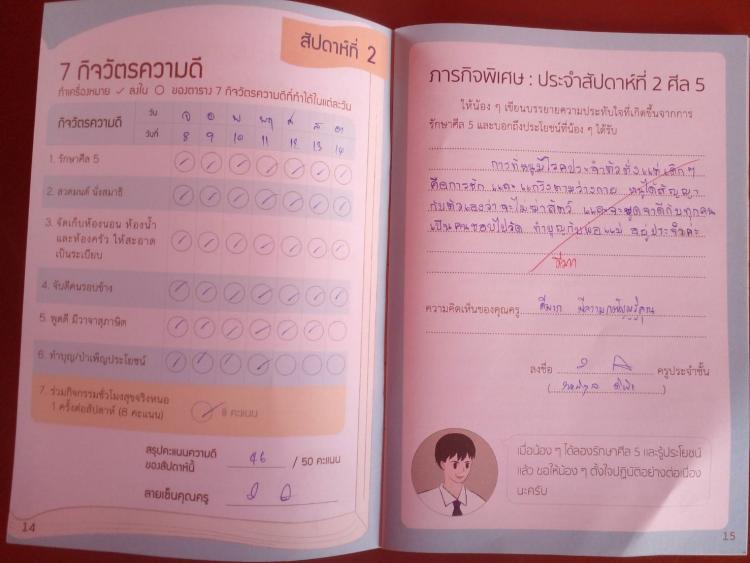 สัปดาห์ที่ 2
7 กิจวัตรความดี
ทำเครื่องหมาย ✓ ลงใน ○ ของตาราง 7 กิจวัตรความดีที่ทำได้ในแต่ละวัน
กิจวัตรความดี
วัน จ อ พ พฤ ศ ส อา
วันที่ 8 9 10 11 12 13 14
1. รักษาศีล 5
2. สวดมนต์ นั่งสมาธิ
3. จัดเก็บห้องนอน ห้องน้ำ
และห้องครัว ให้สะอาด
เป็นระเบียบ
4. จับดีคนรอบข้าง
5. พูดดี มีวาจาสุภาษิต
6. ทำบุญ/บำเพ็ญประโยชน์
7. ร่วมกิจกรรมชั่วโมงสุขจริงหนอ
1 ครั้งต่อสัปดาห์ (8 คะแนน)
8 คะแนน
สรุปคะแนนความดี
ของสัปดาห์นี้ 46 / 50 คะแนน
ลายเซ็นคุณครู
14
ภารกิจพิเศษ : ประจำสัปดาห์ที่ 2 ศีล 5
ให้น้อง ๆ เขียนบรรยายความประทับใจที่เกิดขึ้นจากการ
รักษาศีล 5 และบอกถึงประโยชน์ที่น้อง ๆ ได้รับ
การที่หนูมีโรคประจำตัวตั้งแต่เด็กๆ
คือการชัก และ แกร็งตามร่างกาย หนูได้สัญญา
กับตัวเองว่าจะไม่ฆ่าสัตว์ และจะพูดจาดีกับทุกคน
เป็นคนชอบไปวัด ทำบุญกับพ่อแม่ อยู่ประจำคะ
ความคิดเห็นของคุณครู ดีมาก มีความกตัญญูรู้คุณ
ลงชื่อ ครูประจำชั้น
เมื่อน้อง ๆ ได้ลองรักษาศีล 5 และรู้ประโยชน์
แล้ว ขอให้น้อง ๆ ตั้งใจปฏิบัติอย่างต่อเนื่อง
นะครับ
15